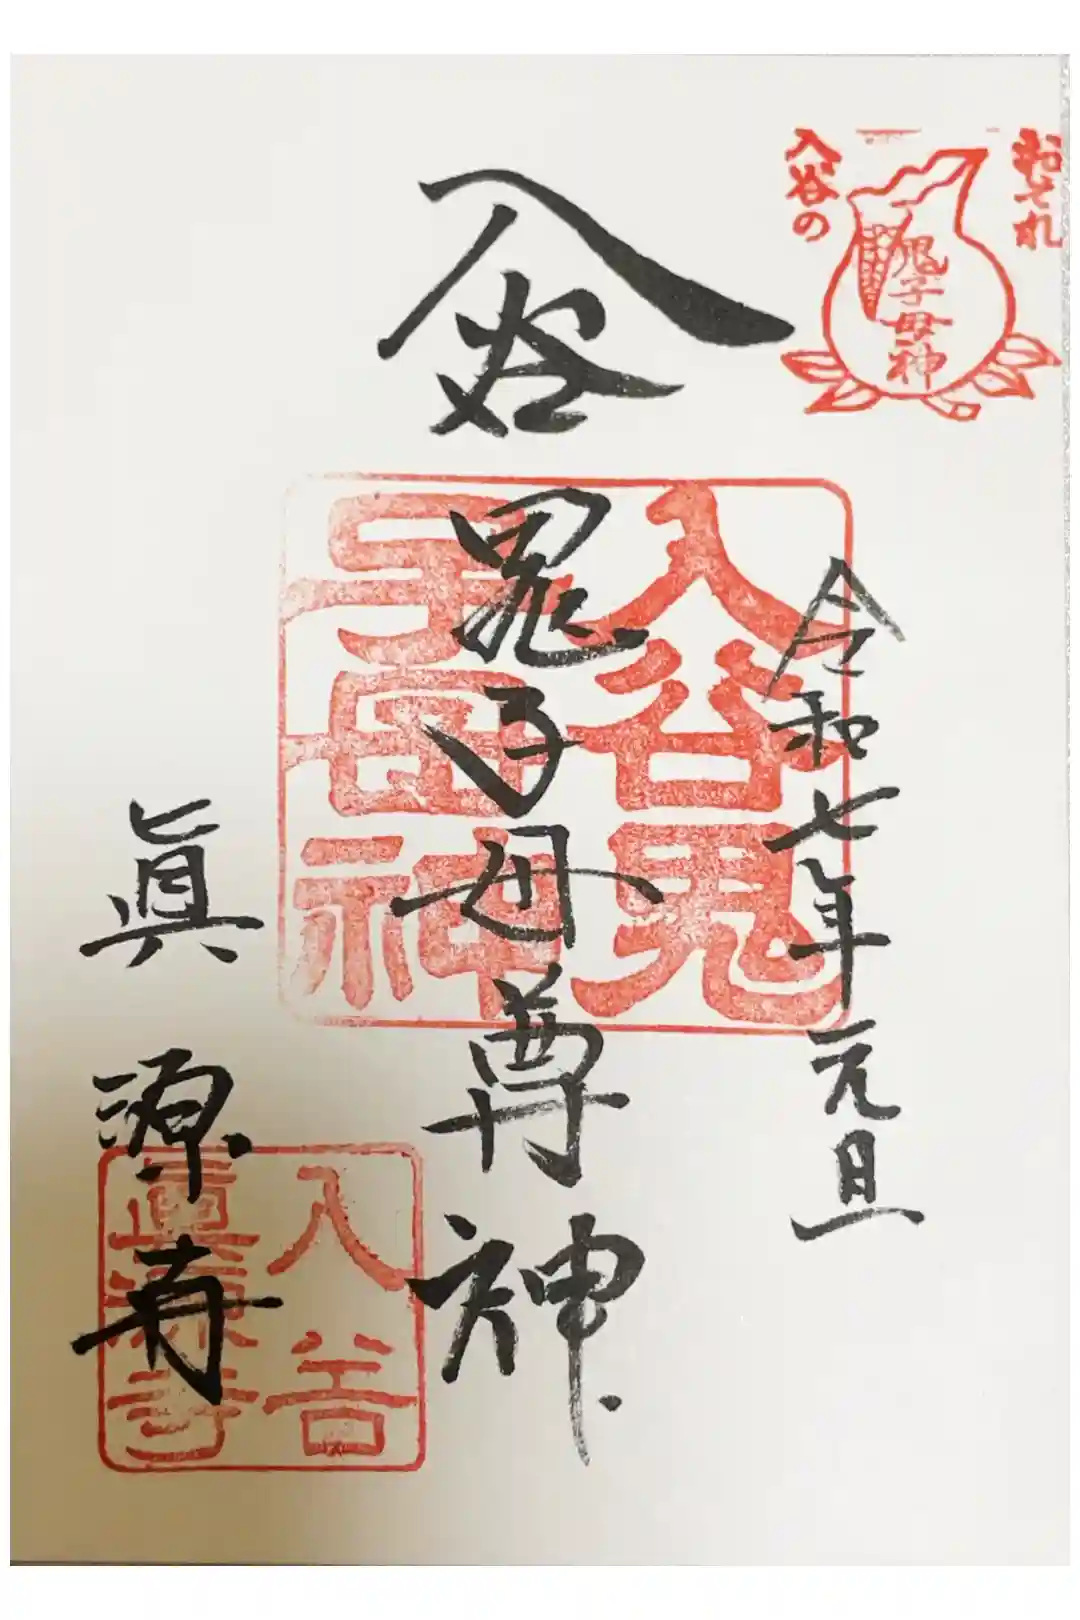 おそれ
入谷の
鬼子母神
令和七年元旦
入谷
鬼子母尊神
眞源寺
入谷鬼
子母神
入谷
眞源寺